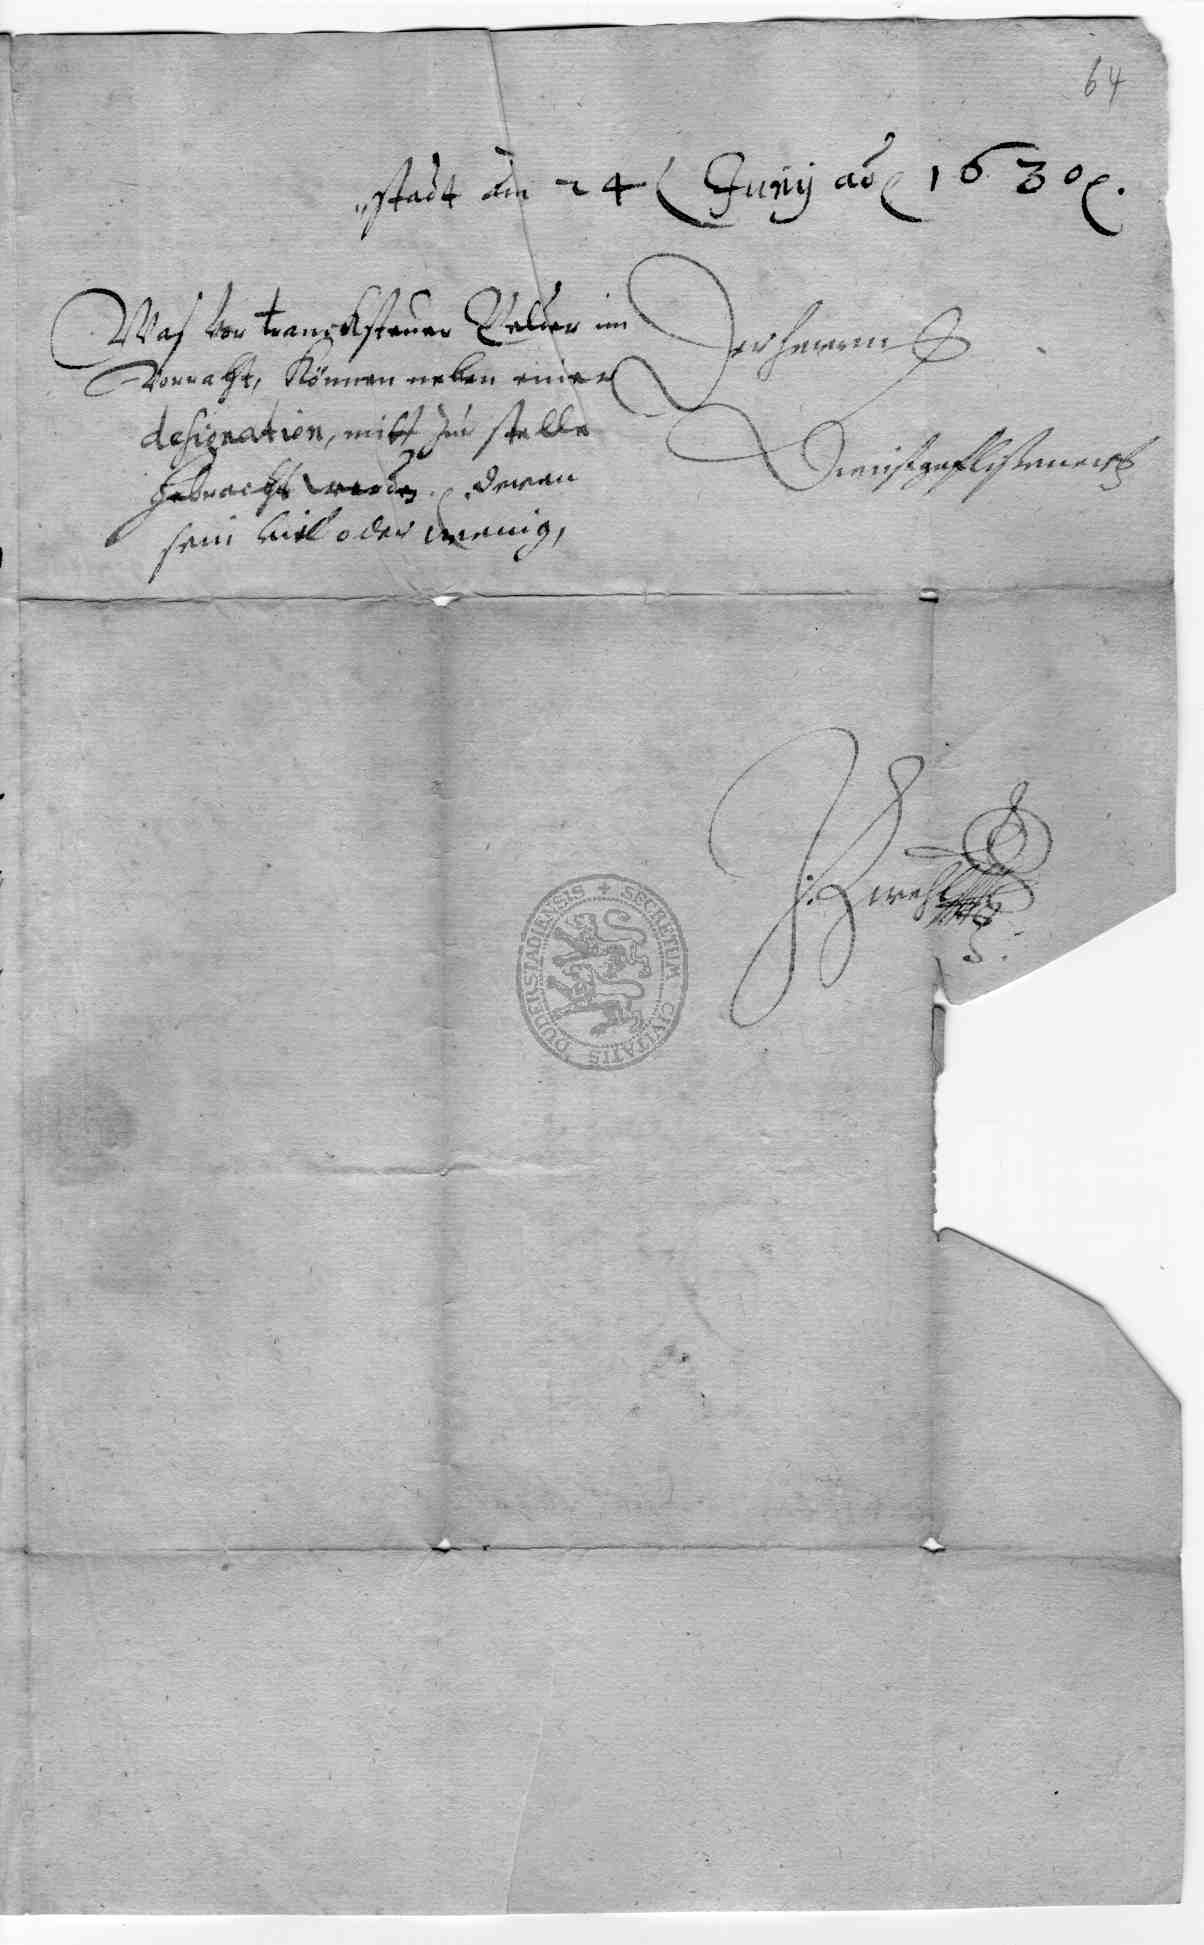 64
stadt am 24 Junij ao 1630.
Was vor tranksteuer Gelder im
vorraht, können neben einer
designation, mitt zur stelle
gebracht werden. deren
sein viel oder wenig,
Der herrn
Dienstgeflissener
SECRETUM CIVITATIS DUDERSTADIENSIS